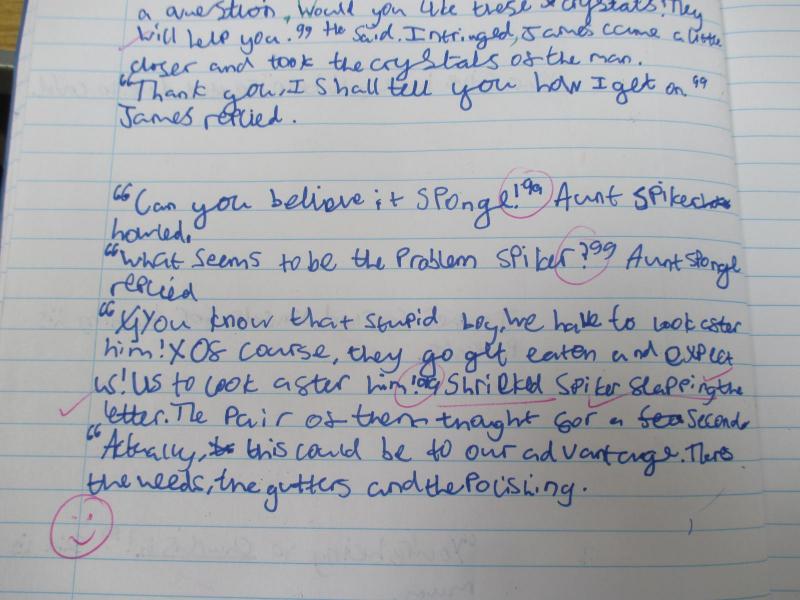 a question, Would you like these crystals? They
will help you." He said. Intringed, James came a little
closer and took the crystals of the man.
"Thank you, I shall tell you how I get on."
James replied.
"Can you believe it Sponge!" Aunt Spiker
howled.
"What seems to be the problem Spiker?" Aunt Sponge
replied
"You know that stupid boy, we have to look after
him! Of course, they go get eaten and expect
us! us to look after him!" Shrieked Spiker slapping the
letter. The pair of them thought for a second.
"Actually, this could be to our advantage. Theres
the weeds, the gutters and the polishing.